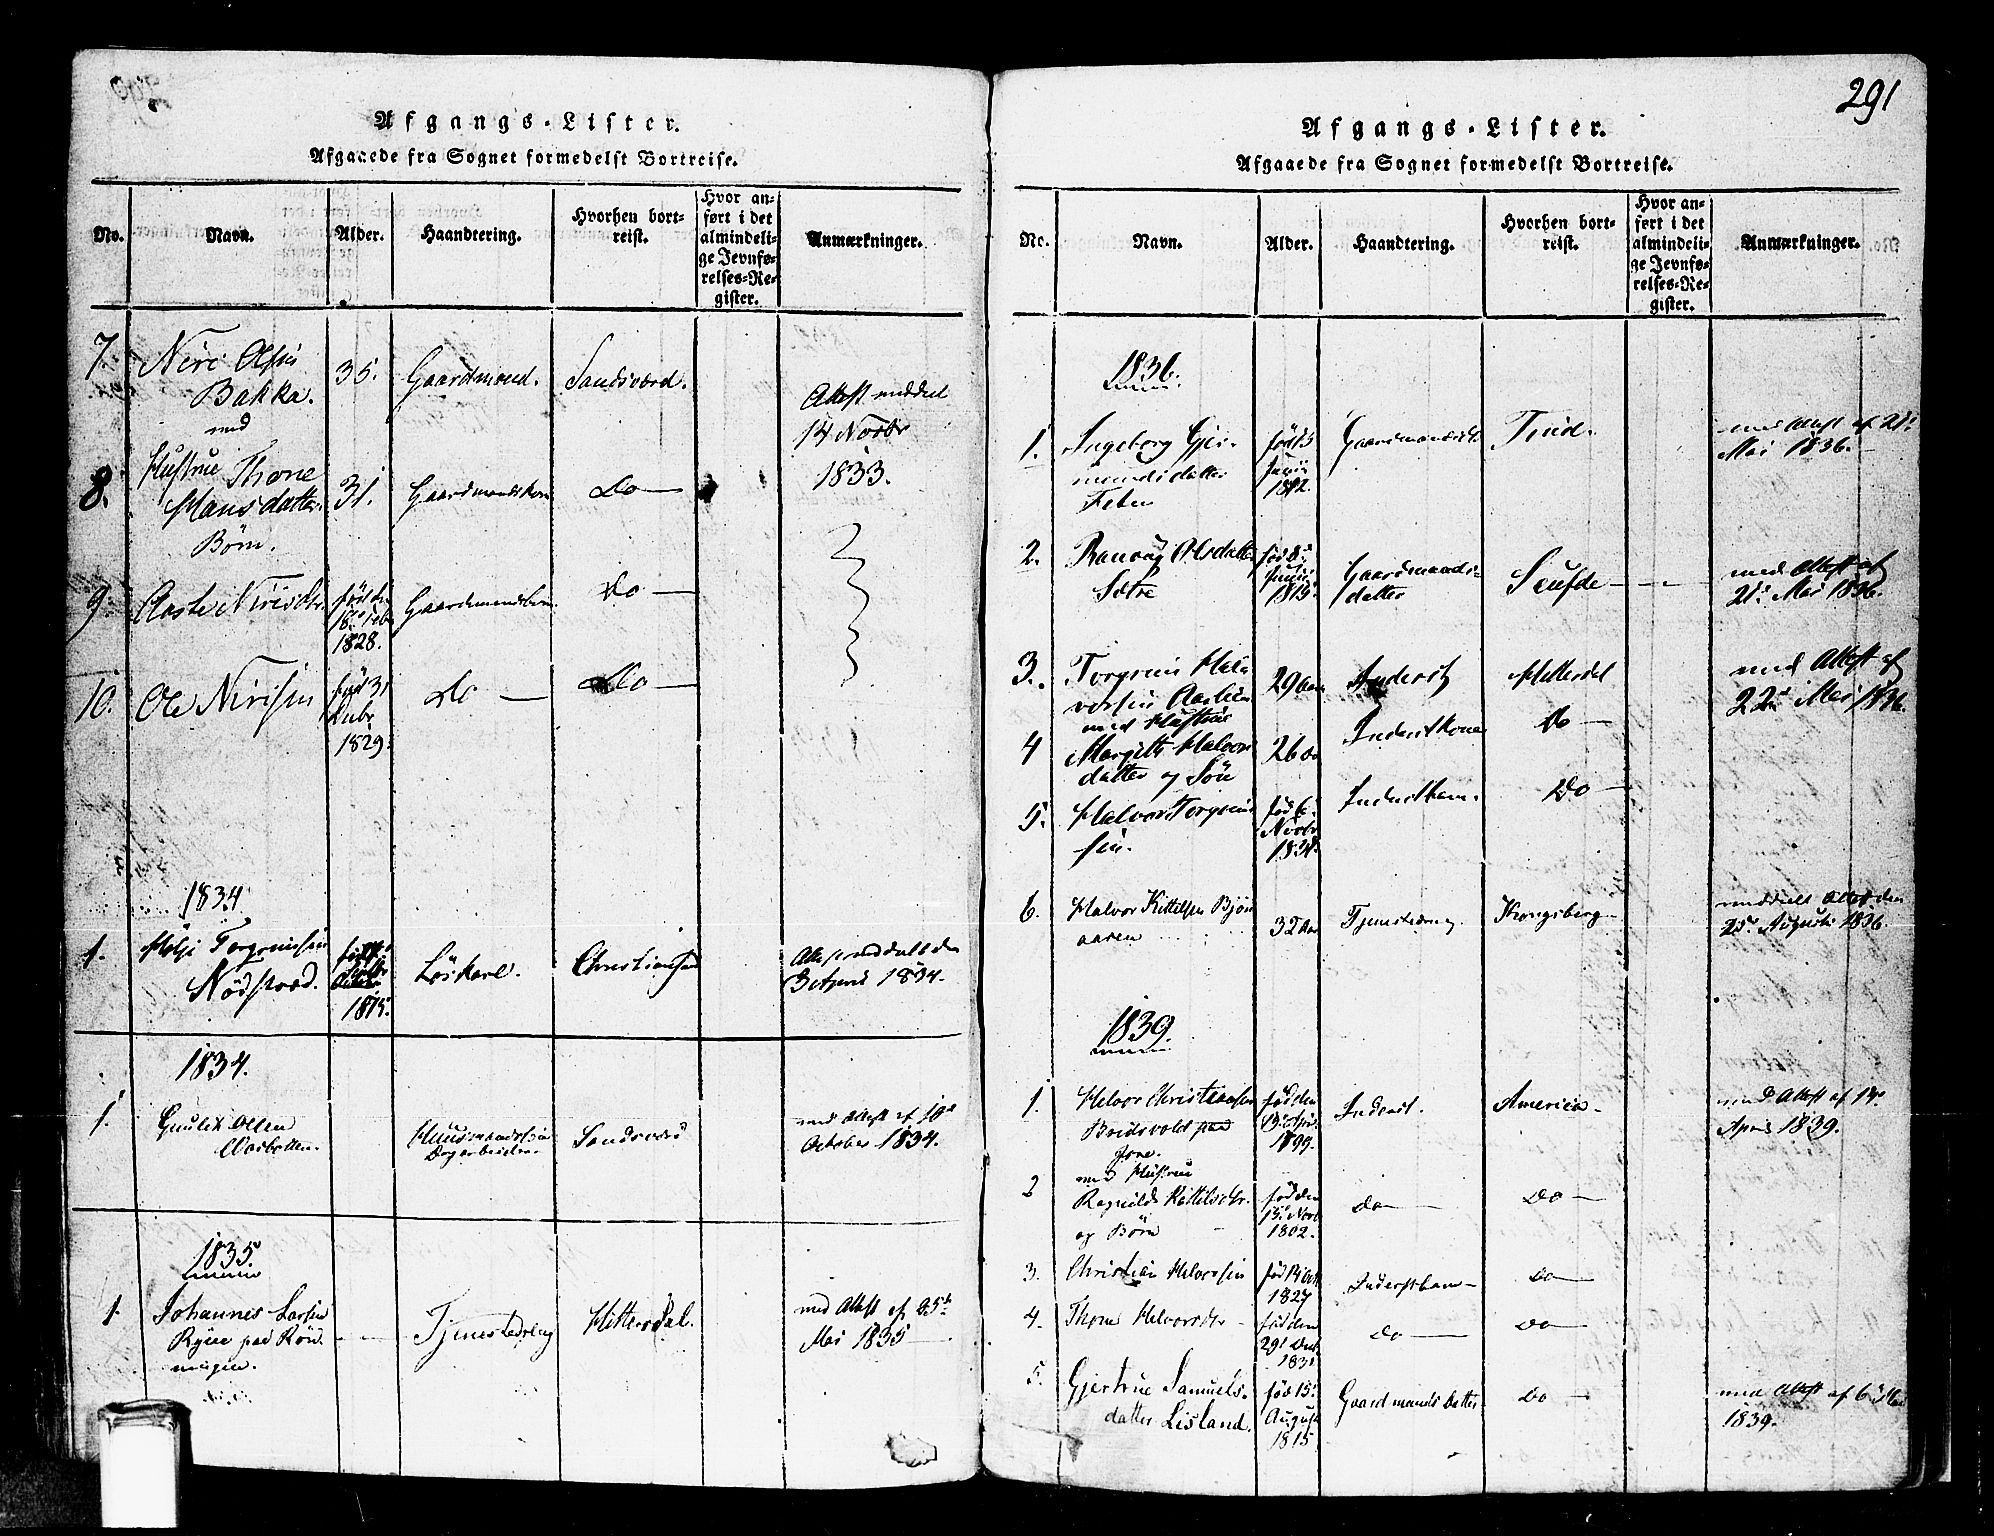 Afgangs-Lister.
Afgaaede fra Sognet formedelst Bortreise.
No.
Navn.
Alder.
Haandtering.
Hvorhen bort-
reist.
Hvor an-
ført i det
almindeli-
ge Jevnfø-
relses-Re-
gister.
Anmærkninger.
7.
Niri Olsen
Bakka.
35.
Gaardmand.
Sandsværd.
Attest meddeel
14 Novbr
1833.
med
8.
Hustrue Thone
Hansdatter.
31.
Gaardmandskone
Do
Børn.
9.
Aaste Nirisdtr.
født
18. Feb
1828.
Gaardmandsbarn.
Do
10.
Ole Nirisen
født 31
Decbr
1829.
Do
Do
1834.
1.
Torgrimsen
1815.
Løskarl.
Christiansand
Attest meddeelt den
3 April 1834.
1834.
1.
Gullik Olsen
Huusmandssøn
Dagarbeider
Sandsværd
med Attest af 10de
October 1834.
1835.
1.
Johannes Larsen
Ryen paa Røn-
ningen.
Tjenestedreng
Hitterdal.
med Attest af 25de
Mai 1835
291
Afgangs-Lister.
Afgaaede fra Sognet formedelst Bortreise.
No.
Navn.
Alder.
Haandtering.
Hvorhen bort-
reist.
Hvor an-
ført i det
almindeli-
ge Jevnfø-
relses-Re-
gister.
Anmærkninger.
1836.
1.
Ingeborg Gjer-
mundsdatter
født 5
1812.
Tind.
med Attest af 21de
Mai 1836.
2.
Ranvey Olsdatter
Sætre
Juni
1815.
Gaardmands-
datter
Seufde
med Attest af
21de Mai 1836.
3.
Torgrim Hal-
vorsen Aaslien
med Hustrue
29 Aar
Inderst
Hitterdal
med Attest af
22de Mai 1836.
4
Margith Halvors
datter og Søn
26
Inderstkone
Do
5.
Halvor Torgrim
sen.
født 6
Novbr
1834.
Inderstbarn.
Do
6.
Halvor Kittelsen Bjøn
aaren
32 Aar
Tjenestedreng
Kongsberg
meddeelt Attest den
25de August 1836
1839.
1.
Helvor Christiansen
Bridsvold paa
født den
1799.
Inderst.
America
med Attest af 14de
April 1839.
2
med Hustrue
Ragnild Kittilsdtr.
og Børn
født den
15de Novb
1802.
do
Do
3.
Christian Helvorsen
1827
Inderstbarn
Do
4.
Thone Helvorsdtr
født den
29de Decbr
1831
do
Do
5.
Gjertrue Samuels-
datter Lisland.
født 15de
August
1815
Gaardmands Datter
Do
med Attest af 6de Mai
1839.